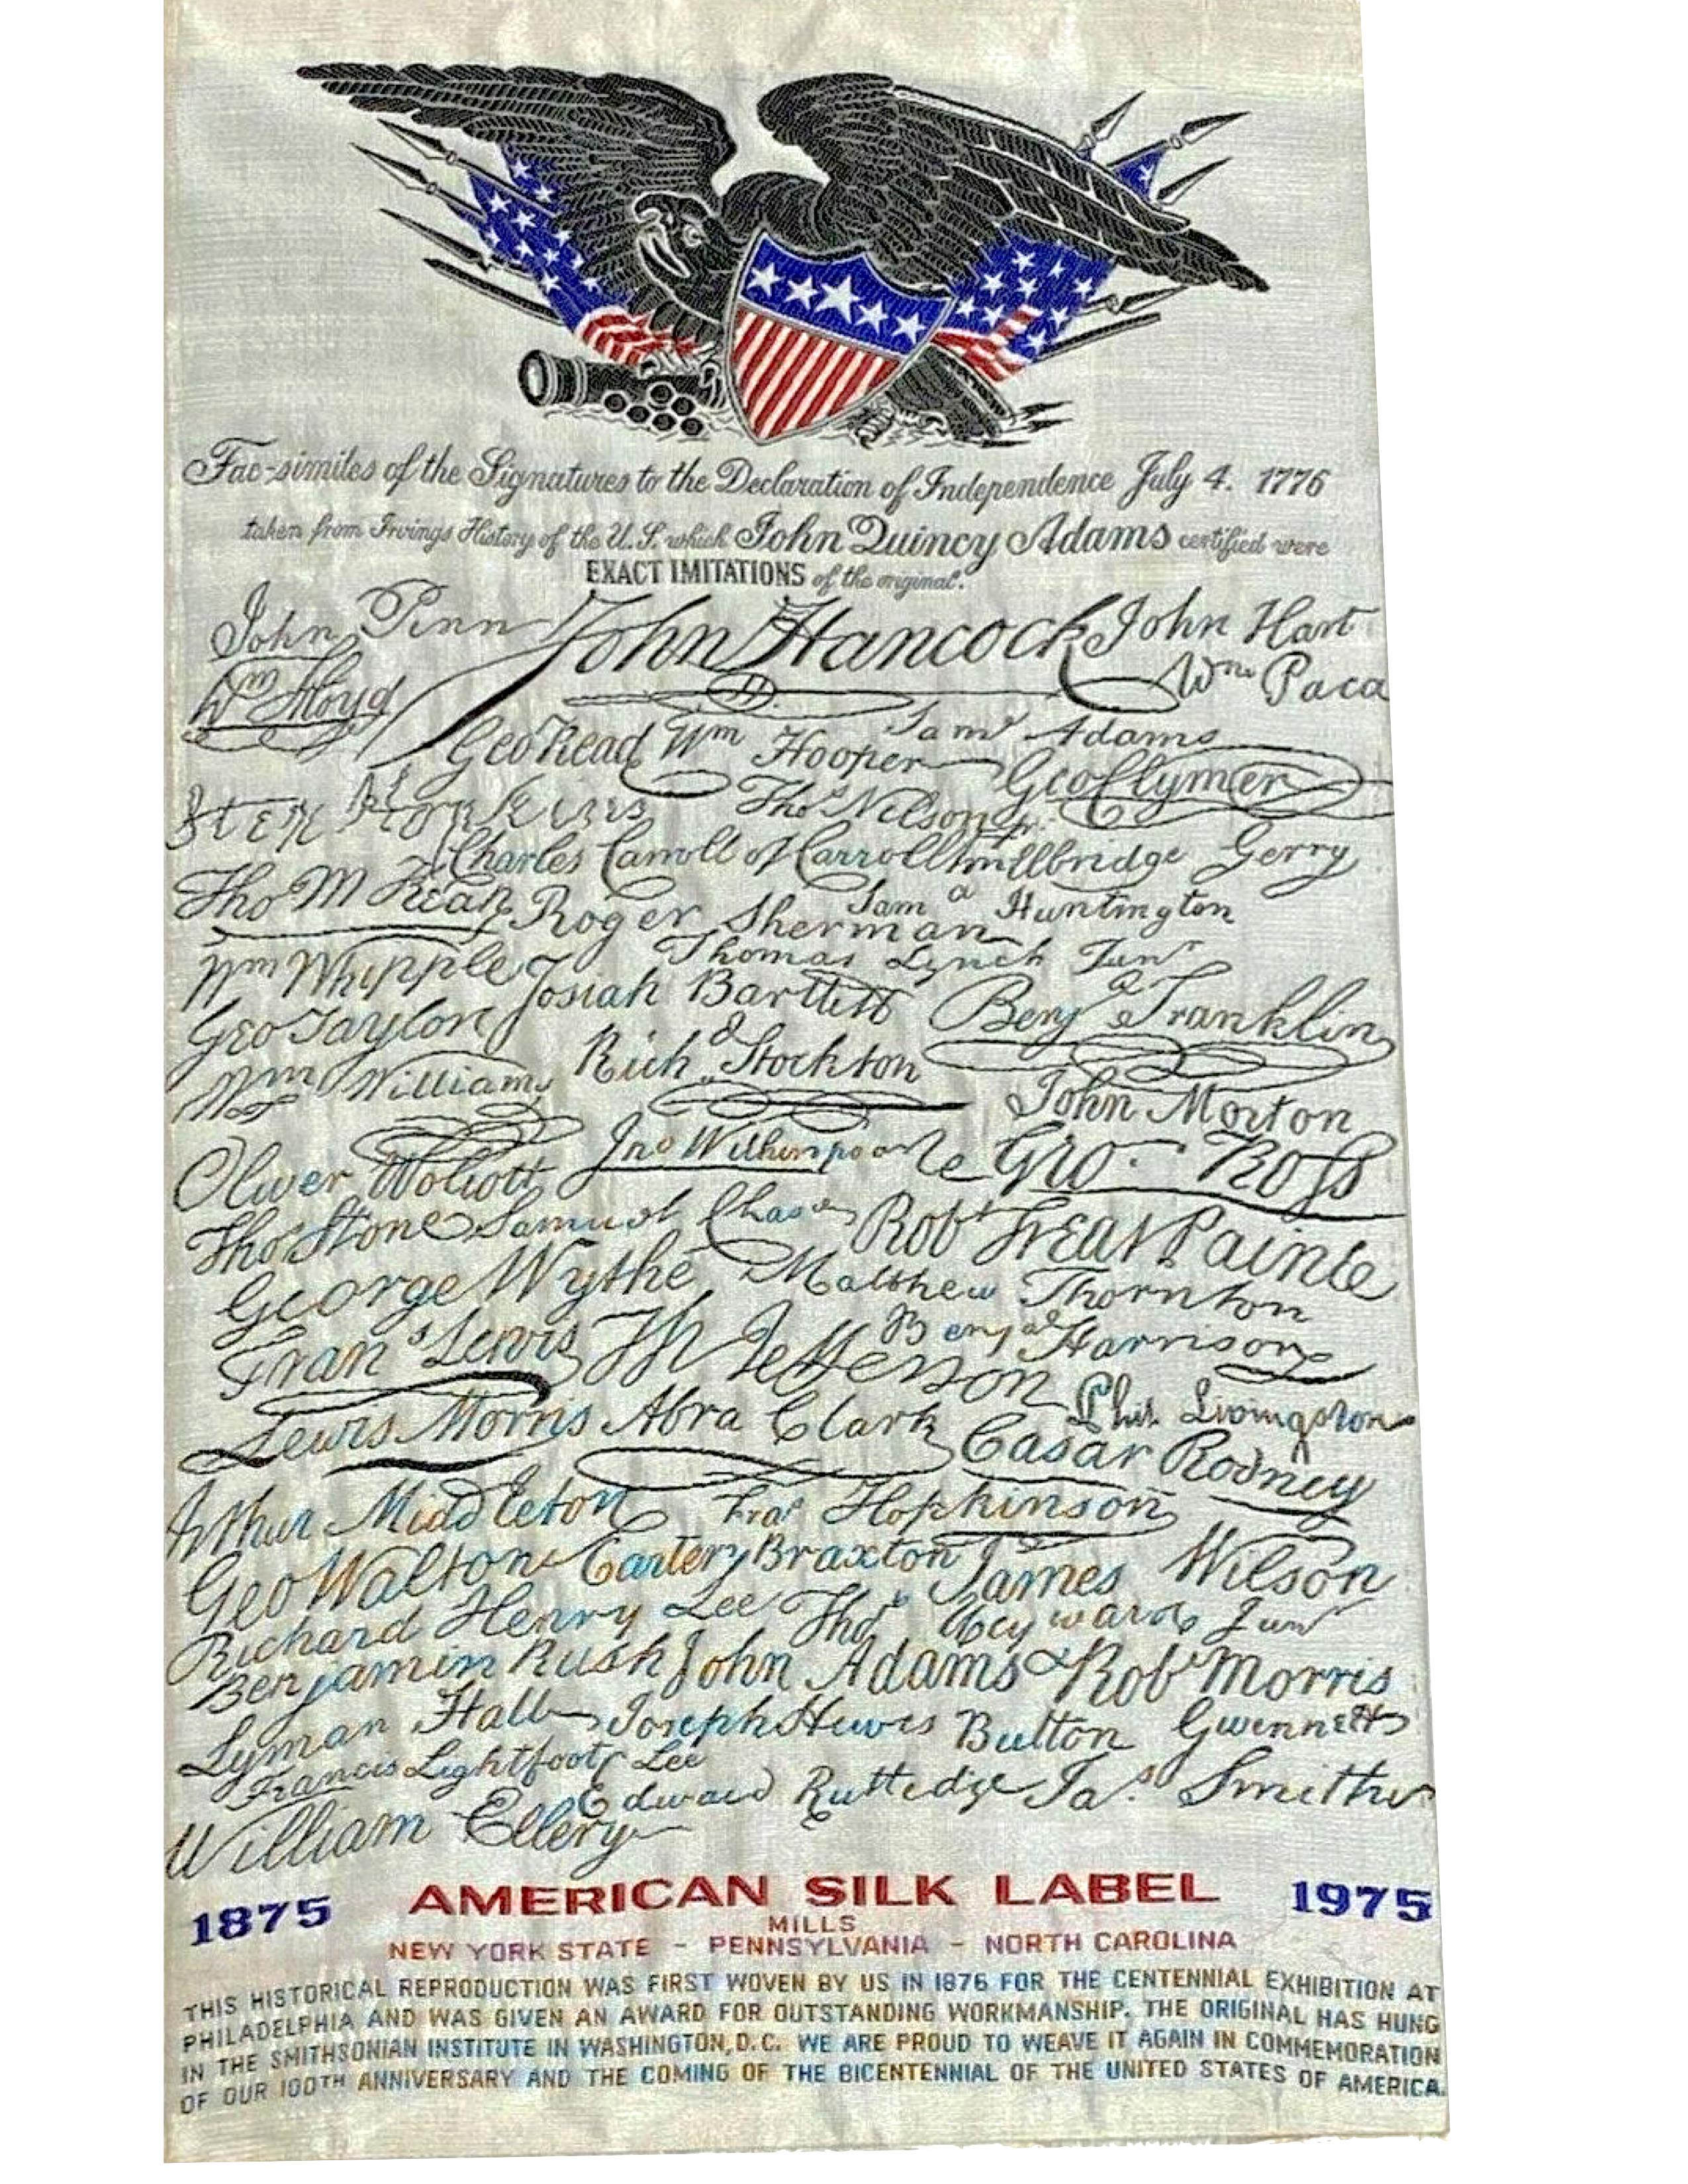 Fac-similes of the Signatures to the Declaration of Independence July 4. 1776
taken from Irvings History of the U.S. which John Quincy Adams certified were
EXACT IMITATIONS of the original.
John Penn John Hancock John Hart
Wm Floyd Wm Paca
Geo Read Wm Hooper Saml Adams
Geo Clymer
Step Hopkins Thos Nelson jr.
Charles Carroll of Carrollton Elbridge Gerry
Tho M Kean Roger Sherman Saml Huntington
Wm Whipple Thomas Lynch Junr
Josiah Bartlett Benj Franklin
Geo Taylor Richd Stockton
Wm Williams John Morton
Oliver Wolcott Jno Witherspoon Geo. Ross
Tho Stone Samuel Chase Robt Treat Paine
George Wythe Matthew Thornton
Frans Lewis Th Jefferson Benj Harrison
Phil. Livingston
Lewis Morris Abra Clark Casar Rodney
Arthur Middleton Fras Hopkinson
Geo Walton Carter Braxton James Wilson
Richard Henry Lee Thos Heyward Junr
Benjamin Rush John Adams Robt Morris
Lyman Hall Joseph Hewes Button Gwinnett
Francis Lightfoot Lee
William Ellery Edward Rutledge Jas. Smith
1875 AMERICAN SILK LABEL 1975
MILLS
NEW YORK STATE - PENNSYLVANIA - NORTH CAROLINA
THIS HISTORICAL REPRODUCTION WAS FIRST WOVEN BY US IN 1876 FOR THE CENTENNIAL EXHIBITION AT
PHILADELPHIA AND WAS GIVEN AN AWARD FOR OUTSTANDING WORKMANSHIP. THE ORIGINAL HAS HUNG
IN THE SMITHSONIAN INSTITUTE IN WASHINGTON, D.C. WE ARE PROUD TO WEAVE IT AGAIN IN COMMEMORATION
OF OUR 100TH ANNIVERSARY AND THE COMING OF THE BICENTENNIAL OF THE UNITED STATES OF AMERICA.